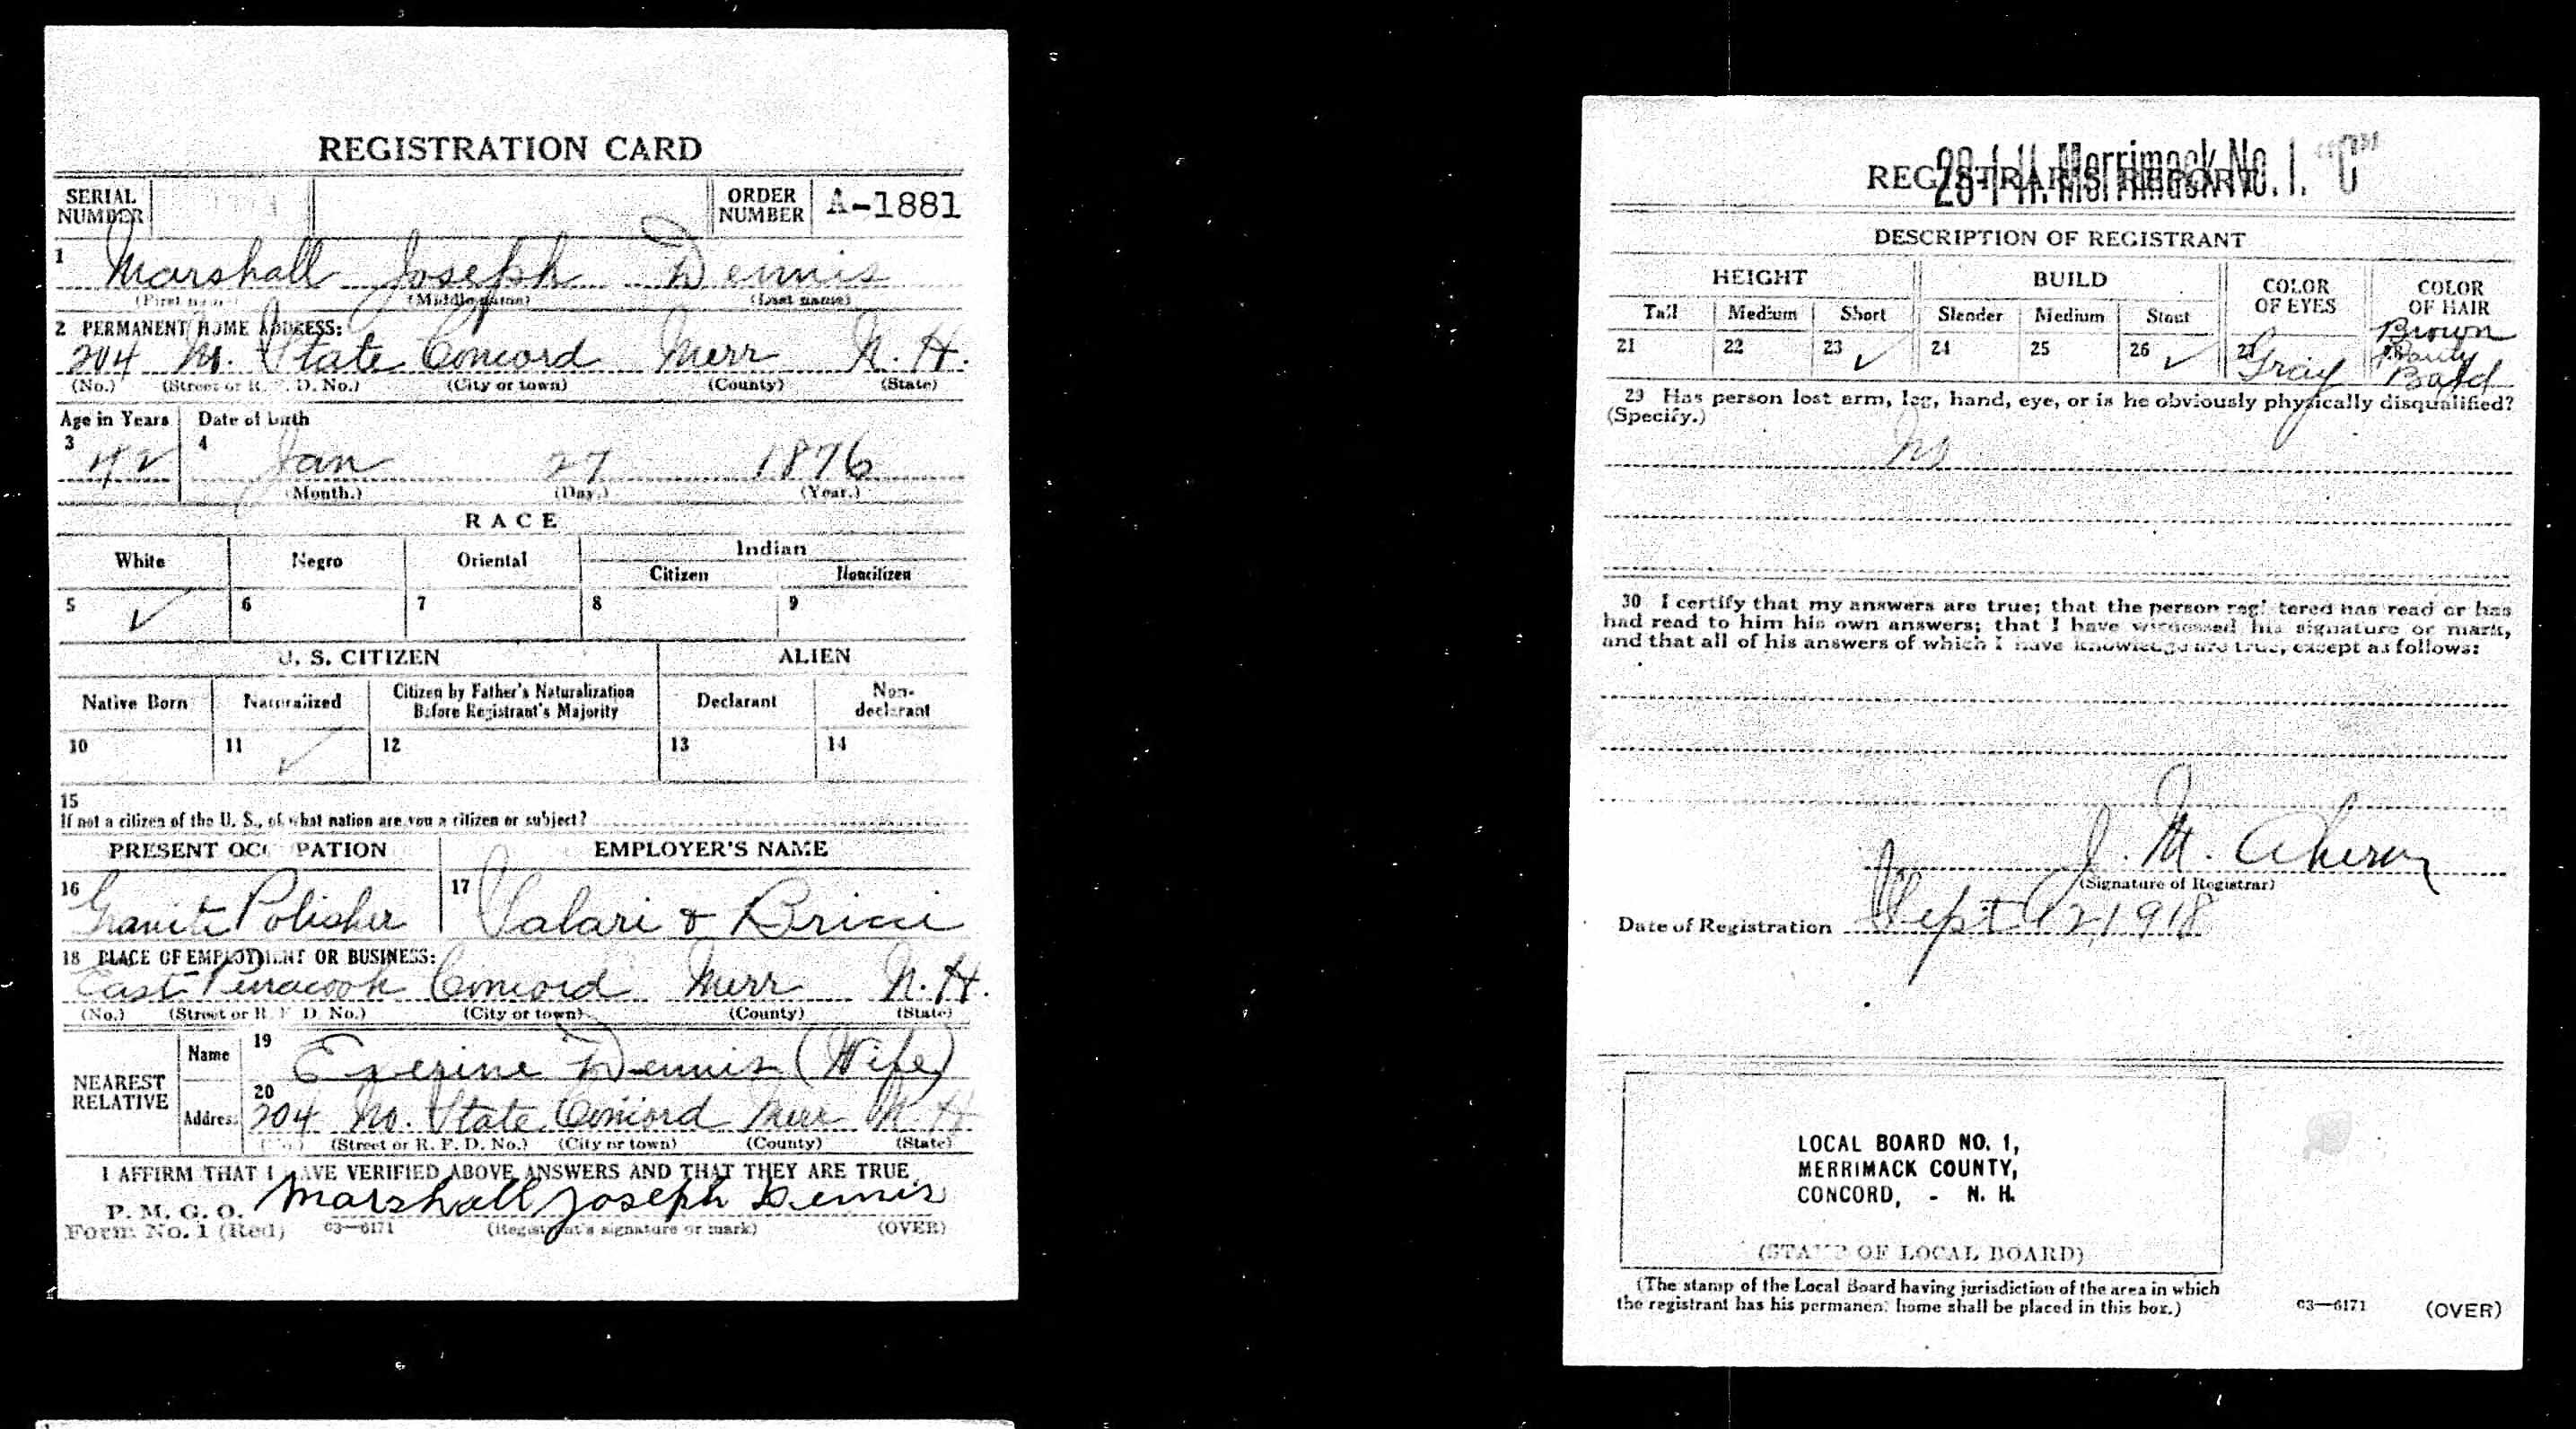 REGISTRATION CARD
SERIAL NUMBER
ORDER NUMBER A-1881
1 Marshall Joseph Dennis
(First name) (Middle name) (Last name)
2 PERMANENT HOME ADDRESS:
204 No. State Concord Merr N. H.
(No.) (Street or R. F. D. No.) (City or town) (County) (State)
Age in Years Date of birth
3 42 4 Jan 27 1876
(Month.) (Day.) (Year.)
RACE
White Negro Oriental Indian
Citizen Noncitizen
5 ✓ 6 7 8 9
U. S. CITIZEN ALIEN
Native Born Naturalized Citizen by Father's Naturalization Before Registrant's Majority Declarant Non-declarant
10 11 ✓ 12 13 14
15
If not a citizen of the U. S., of what nation are you a citizen or subject?
PRESENT OCCUPATION EMPLOYER'S NAME
16 Granite Polisher 17 &
18 PLACE OF EMPLOYMENT OR BUSINESS:
East Penacook Concord Merr N. H.
(No.) (Street or R. F. D. No.) (City or town) (County) (State)
NEAREST RELATIVE
Name 19 Dennis (Wife)
Address 20 204 No. State Concord Merr N H
(No.) (Street or R. F. D. No.) (City or town) (County) (State)
I AFFIRM THAT I HAVE VERIFIED ABOVE ANSWERS AND THAT THEY ARE TRUE.
P. M. G. O. Marshall Joseph Dennis
Form No. 1 (Red) 03—6171 (Registrant's signature or mark) (OVER)
REGISTRAR'S REPORT
28-1-11. Merrimack No. 1. "C"
DESCRIPTION OF REGISTRANT
HEIGHT BUILD COLOR OF EYES COLOR OF HAIR
Tall Medium Short Slender Medium Stout
21 22 23 ✓ 24 25 26 ✓ 27 Gray Brown Partly Bald
29 Has person lost arm, leg, hand, eye, or is he obviously physically disqualified?
(Specify.)
No
30 I certify that my answers are true; that the person registered has read or has
had read to him his own answers; that I have witnessed his signature or mark,
and that all of his answers of which I have knowledge are true, except as follows:
J. M. Ahern
(Signature of Registrar)
Date of Registration Sept 12 1918
LOCAL BOARD NO. 1,
MERRIMACK COUNTY,
CONCORD, - N. H.
(STAMP OF LOCAL BOARD)
(The stamp of the Local Board having jurisdiction of the area in which
the registrant has his permanent home shall be placed in this box.)
03—6171 (OVER)